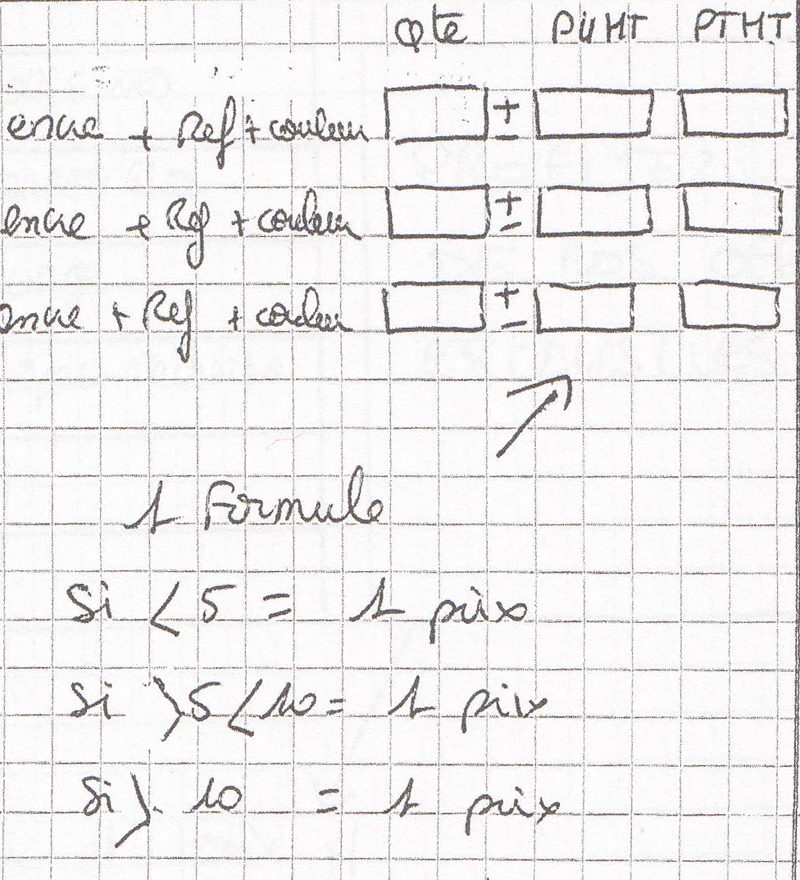 Qte PUHT PTHT
encre + Ref + couleur + -
encre + Ref + couleur + -
encre + Ref + couleur + -
1 Formule
Si < 5 = 1 prix
Si > 5 < 10 = 1 prix
Si > 10 = 1 prix